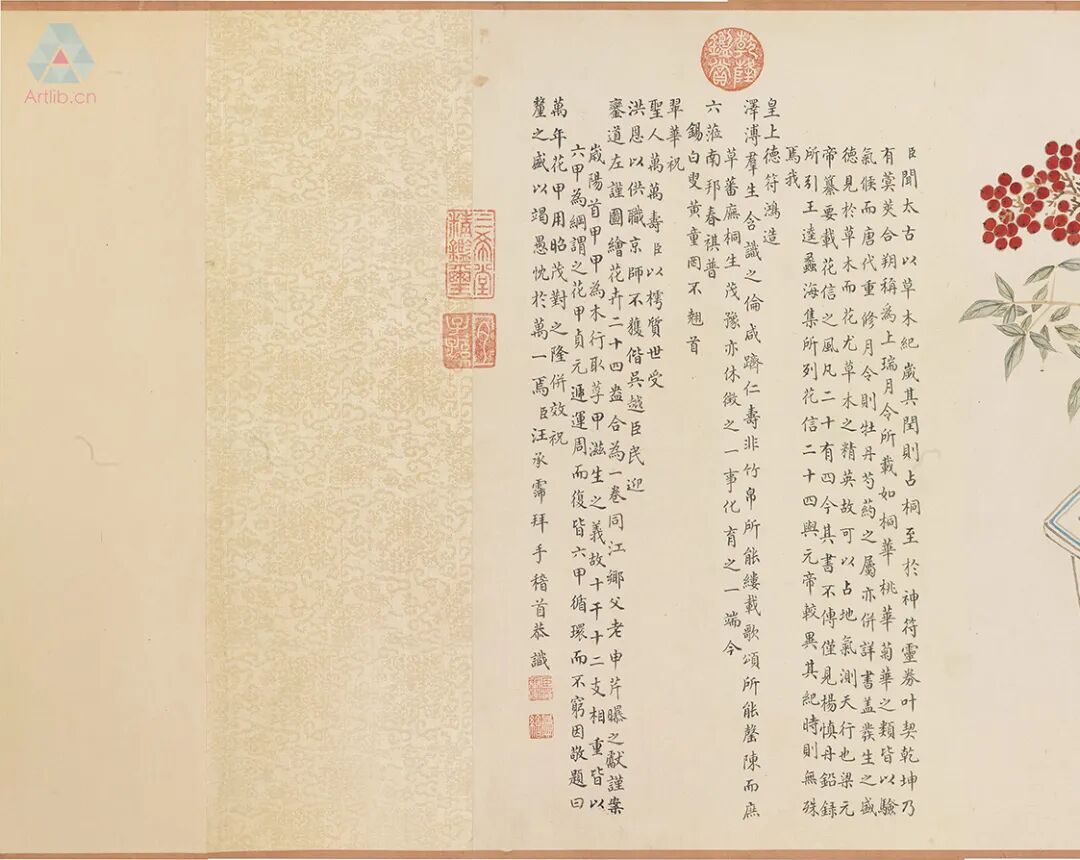 臣聞太古以草木紀歲其閏則占桐至於神符靈券叶契乾坤乃
有蓂莢合朔稱為上瑞月令所載如桐華桃華菊華之類皆以驗
氣候而唐代重修月令則牡丹芍藥之屬亦併詳書蓋發生之盛
德見於草木而花尤草木之精英故可以占地氣測天行也梁元
帝纂要載花信之風凡二十有四今其書不傳僅見楊慎丹鉛錄
所引王逵蠡海集所列花信二十四與元帝較異其紀時則無殊
焉我
皇上德符鴻造
澤溥羣生含識之倫咸躋仁壽非竹帛所能縷載歌頌所能罄陳而庶
草蕃廡桐生茂豫亦休徵之一事化育之一端今
六蒞南邦春祺普
錫白叟黃童罔不翹首
翠華祝
聖人萬萬壽臣以樗質世受
洪恩以供職京師不獲偕吳越臣民迎
鑾道左謹圖繪花卉二十四盎合為一卷同江鄉父老申芹曝之獻謹案
歲陽首甲甲為木行取莩甲滋生之義故十干十二支相重皆以
六甲為綱謂之花甲貞元遞運周而復皆六甲循環而不窮因敬題曰
萬年花甲用昭茂對之隆併效祝
釐之盛以竭愚忱於萬一焉臣汪承霈拜手稽首恭識
乾隆鑒賞
三希堂精鑒璽
宜子孫
Artlib.cn